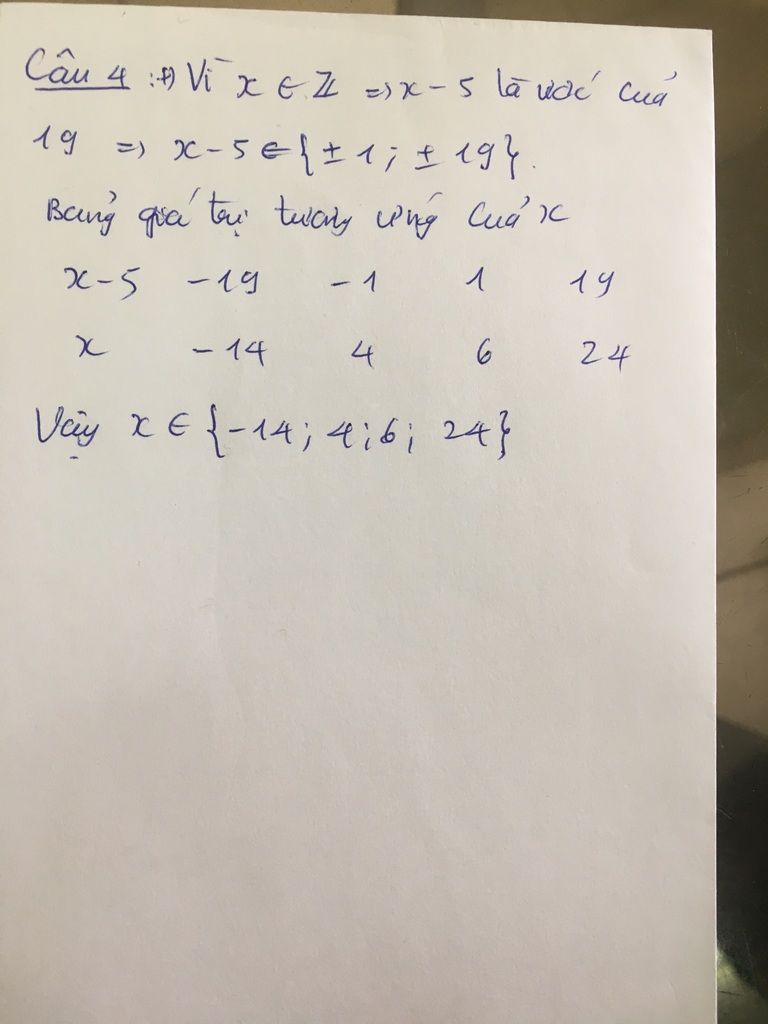 Câu 4 : +) Vì x ∈ Z => x - 5 là ước của
19 => x - 5 ∈ {± 1 ; ± 19}.
Bảng giá trị tương ứng của x
x - 5 - 19 - 1 1 19
x - 14 4 6 24
Vậy x ∈ {-14 ; 4 ; 6 ; 24}